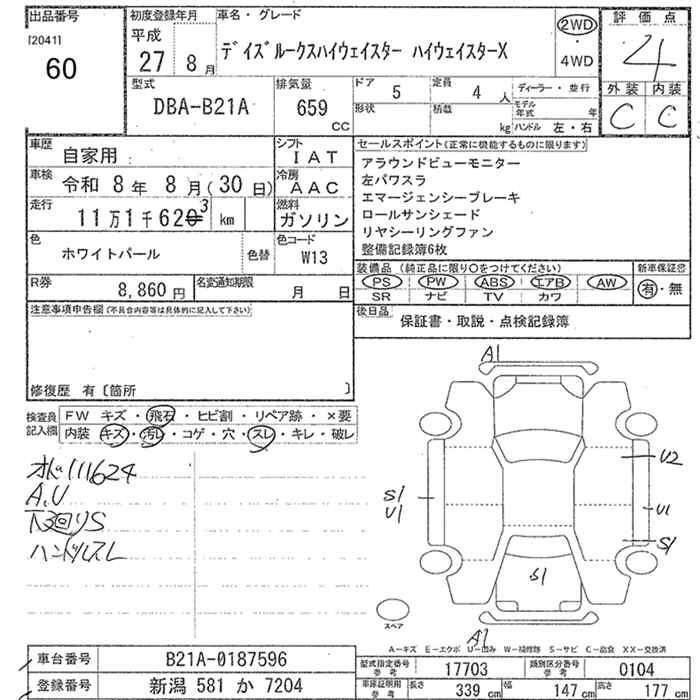 出品番号
[2041]
60
初度登録年月
平成
27 8月
車名・グレード
デイズルークスハイウェイスター ハイウェイスターX
2WD
・
4WD
評価点
4
外装 内装
C C
型式
DBA-B21A
排気量
659
CC
ドア 5
定員 4 人
形状
積載 kg
ディーラー・並行
モデル年式 年
ハンドル 左・右
車歴
自家用
シフト
IAT
車検
令和 8年 8月(30日)
冷房
AAC
走行
11万1千620 3 km
燃料
ガソリン
色
ホワイトパール
色替
色コード
W13
R券
8,860円
名変通知期限
月 日
セールスポイント(正常に機能するものに限ります)
アラウンドビューモニター
左パワスラ
エマージェンシーブレーキ
ロールサンシェード
リヤシーリングファン
整備記録簿6枚
装備品 (純正品に限り○をつけてください)
新車保証書
PS PW ABS エアB AW
SR ナビ TV カワ
有・無
後日品
保証書・取説・点検記録簿
注意事項申告欄(不具合内容等は具体的に記入して下さい)
修復歴 有〔箇所 〕
検査員記入欄
FW キズ・飛石・ヒビ割・リペア跡・×要
内装 キズ・汚レ・コゲ・穴・スレ・キレ・破レ
111624
A,U
ハンドルスレ
A1
U2
S1
U1
U1
S1
S1
A1
スペア
A-キズ E-エクボ U-凹み W-補修跡 S-サビ C-腐食 XX-交換済
車台番号
B21A-0187596
登録番号
新潟 581 か 7204
型式指定番号
参考
17703
類別区分番号
参考
0104
車庫証明用
参考
長さ 339 cm 幅 147 cm 高さ 177 cm